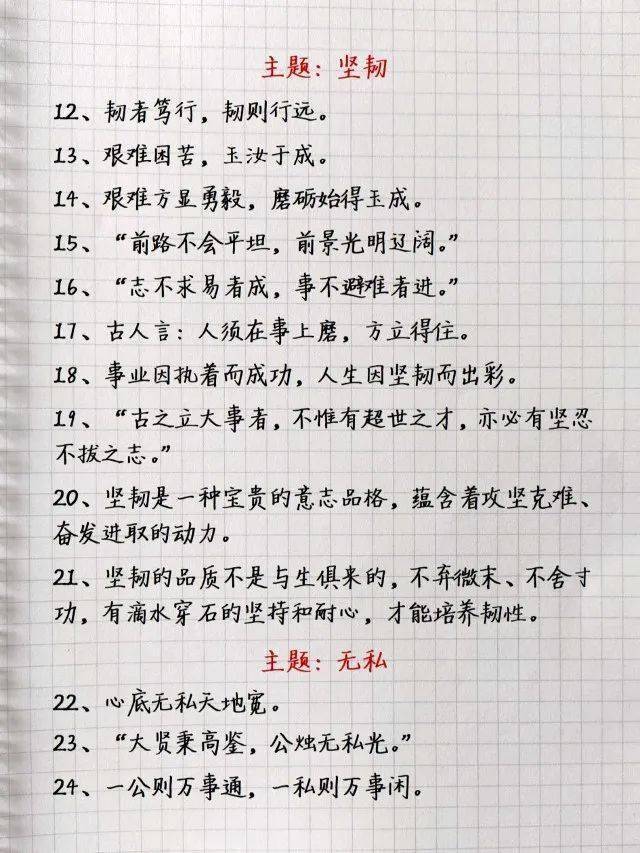 主题：坚韧
12、韧者笃行，韧则行远。
13、艰难困苦，玉汝于成。
14、艰难方显勇毅，磨砺始得玉成。
15、“前路不会平坦，前景光明辽阔。”
16、“志不求易者成，事不避难者进。”
17、古人言：人须在事上磨，方立得住。
18、事业因执着而成功，人生因坚韧而出彩。
19、“古之立大事者，不惟有超世之才，亦必有坚忍
不拔之志。”
20、坚韧是一种宝贵的意志品格，蕴含着攻坚克难、
奋发进取的动力。
21、坚韧的品质不是与生俱来的，不弃微末、不舍寸
功，有滴水穿石的坚持和耐心，才能培养韧性。
主题：无私
22、心底无私天地宽。
23、“大贤秉高鉴，公烛无私光。”
24、一公则万事通，一私则万事闲。